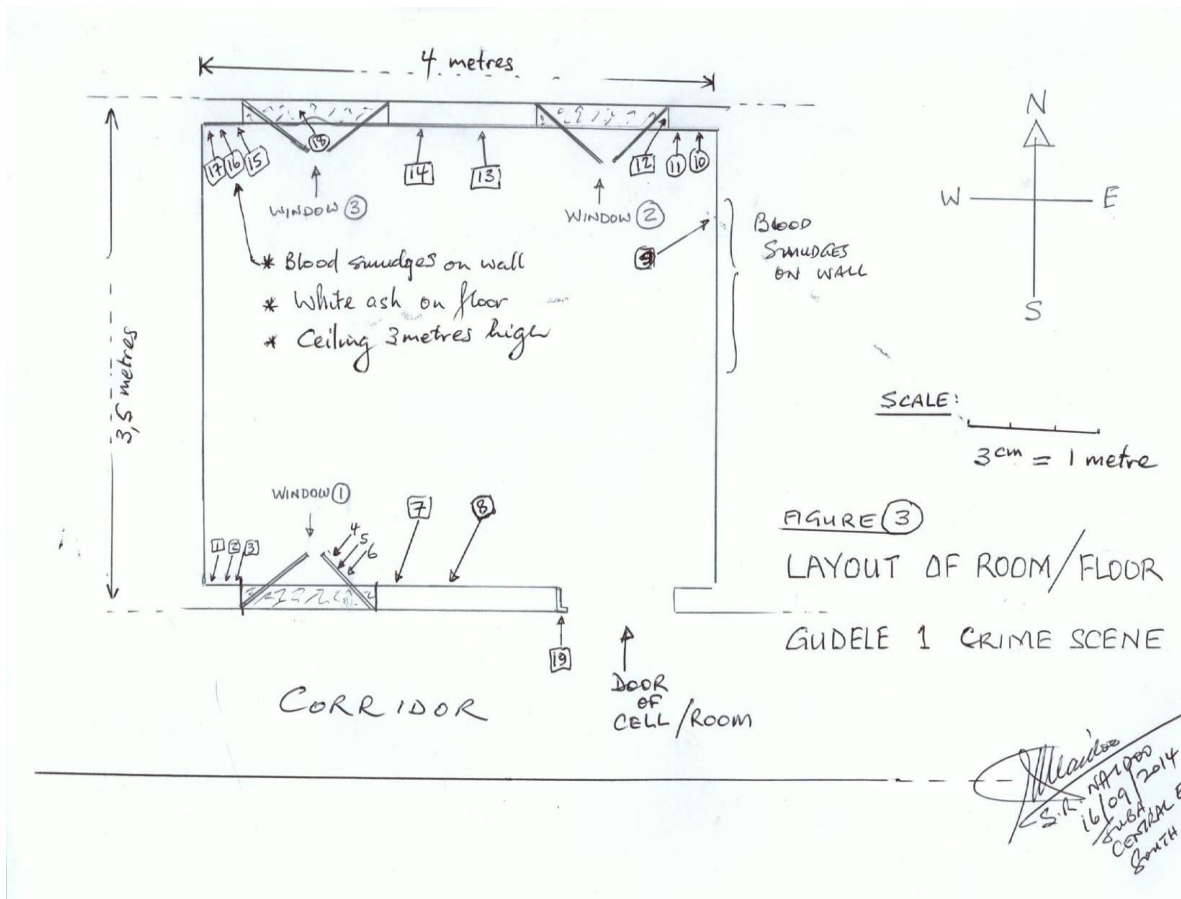 4 metres
N
W E
S
3,5 metres
18
17 16 15
14 13
12 11 10
WINDOW 3
WINDOW 2
9
BLOOD
SMUDGES
ON WALL
* Blood smudges on wall
* White ash on floor
* Ceiling 3 metres high
SCALE:
3cm = 1 metre
WINDOW 1
1 2 3
4
5
6
7
8
19
DOOR
OF
CELL/ROOM
CORRIDOR
FIGURE 3
LAYOUT OF ROOM/FLOOR
GUDELE 1 CRIME SCENE
S.R. NAIDOO
16/09/2014
JUBA
CENTRAL E
SOUTH